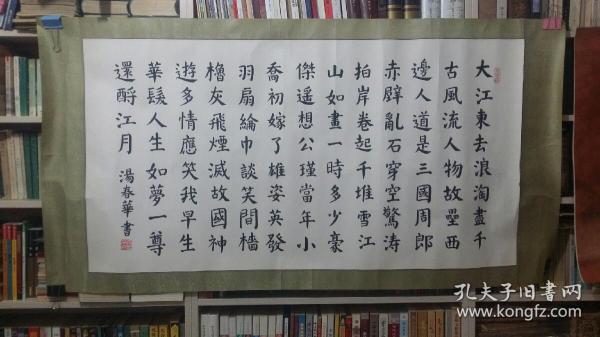 大江東去浪淘盡千
古風流人物故壘西
邊人道是三國周郎
赤壁亂石穿空驚涛
拍岸卷起千堆雪江
山如畫一時多少豪
傑遥想公瑾當年小
喬初嫁了雄姿英發
羽扇綸巾談笑間檣
櫓灰飛煙滅故國神
遊多情應笑我早生
華髮人生如夢一尊
還酹江月
湯春華書
孔夫子旧書网
www.kongfz.com